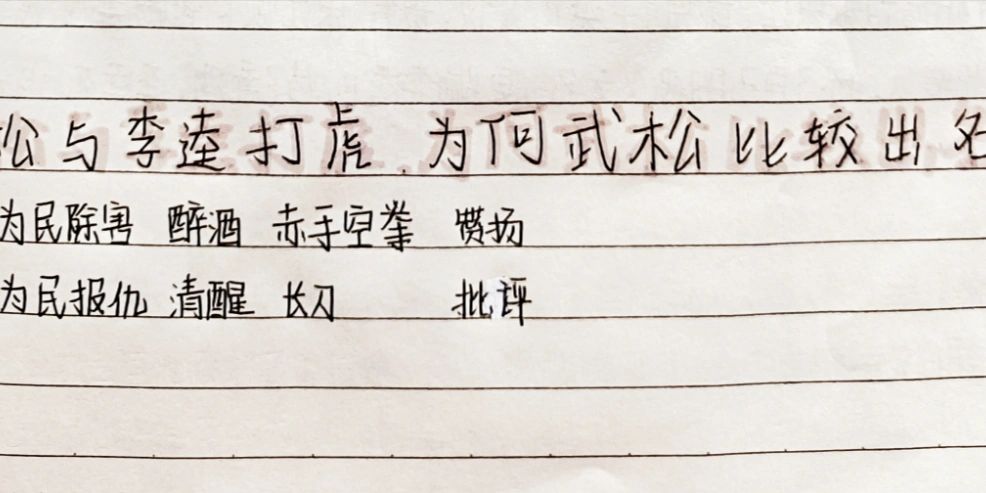 松与李逵打虎.为何武松比较出名
为民除害 醉酒 赤手空拳 赞扬
为民报仇 清醒 长刀 批评